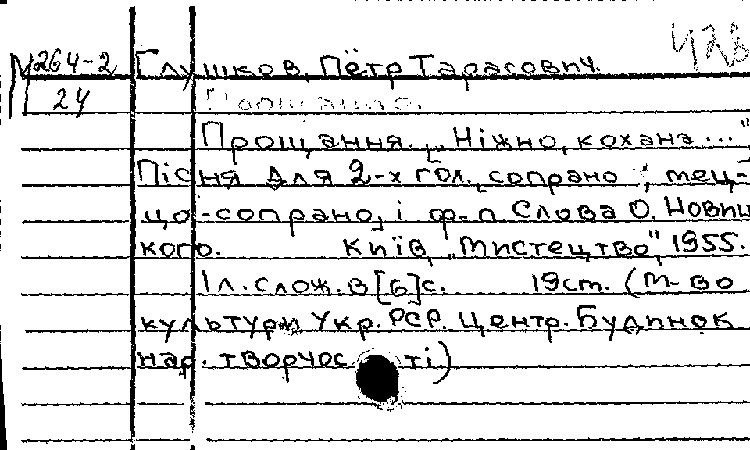 М 264-2 Глушков, Пётр Тарасович. 428
24 Прощание.
Прощання. [„Ніжно, кохана ..."
Пісня для 2-х гол., сопрано і мец-
цо-сопрано, і ф-п Слова О. Новиц
кого. Київ, "Мистецтво", 1955.
1 л. слож. в [6] с. 19 cm. (М-во
культури Укр. РСР. Центр. Будинок
нар. творчос ті)